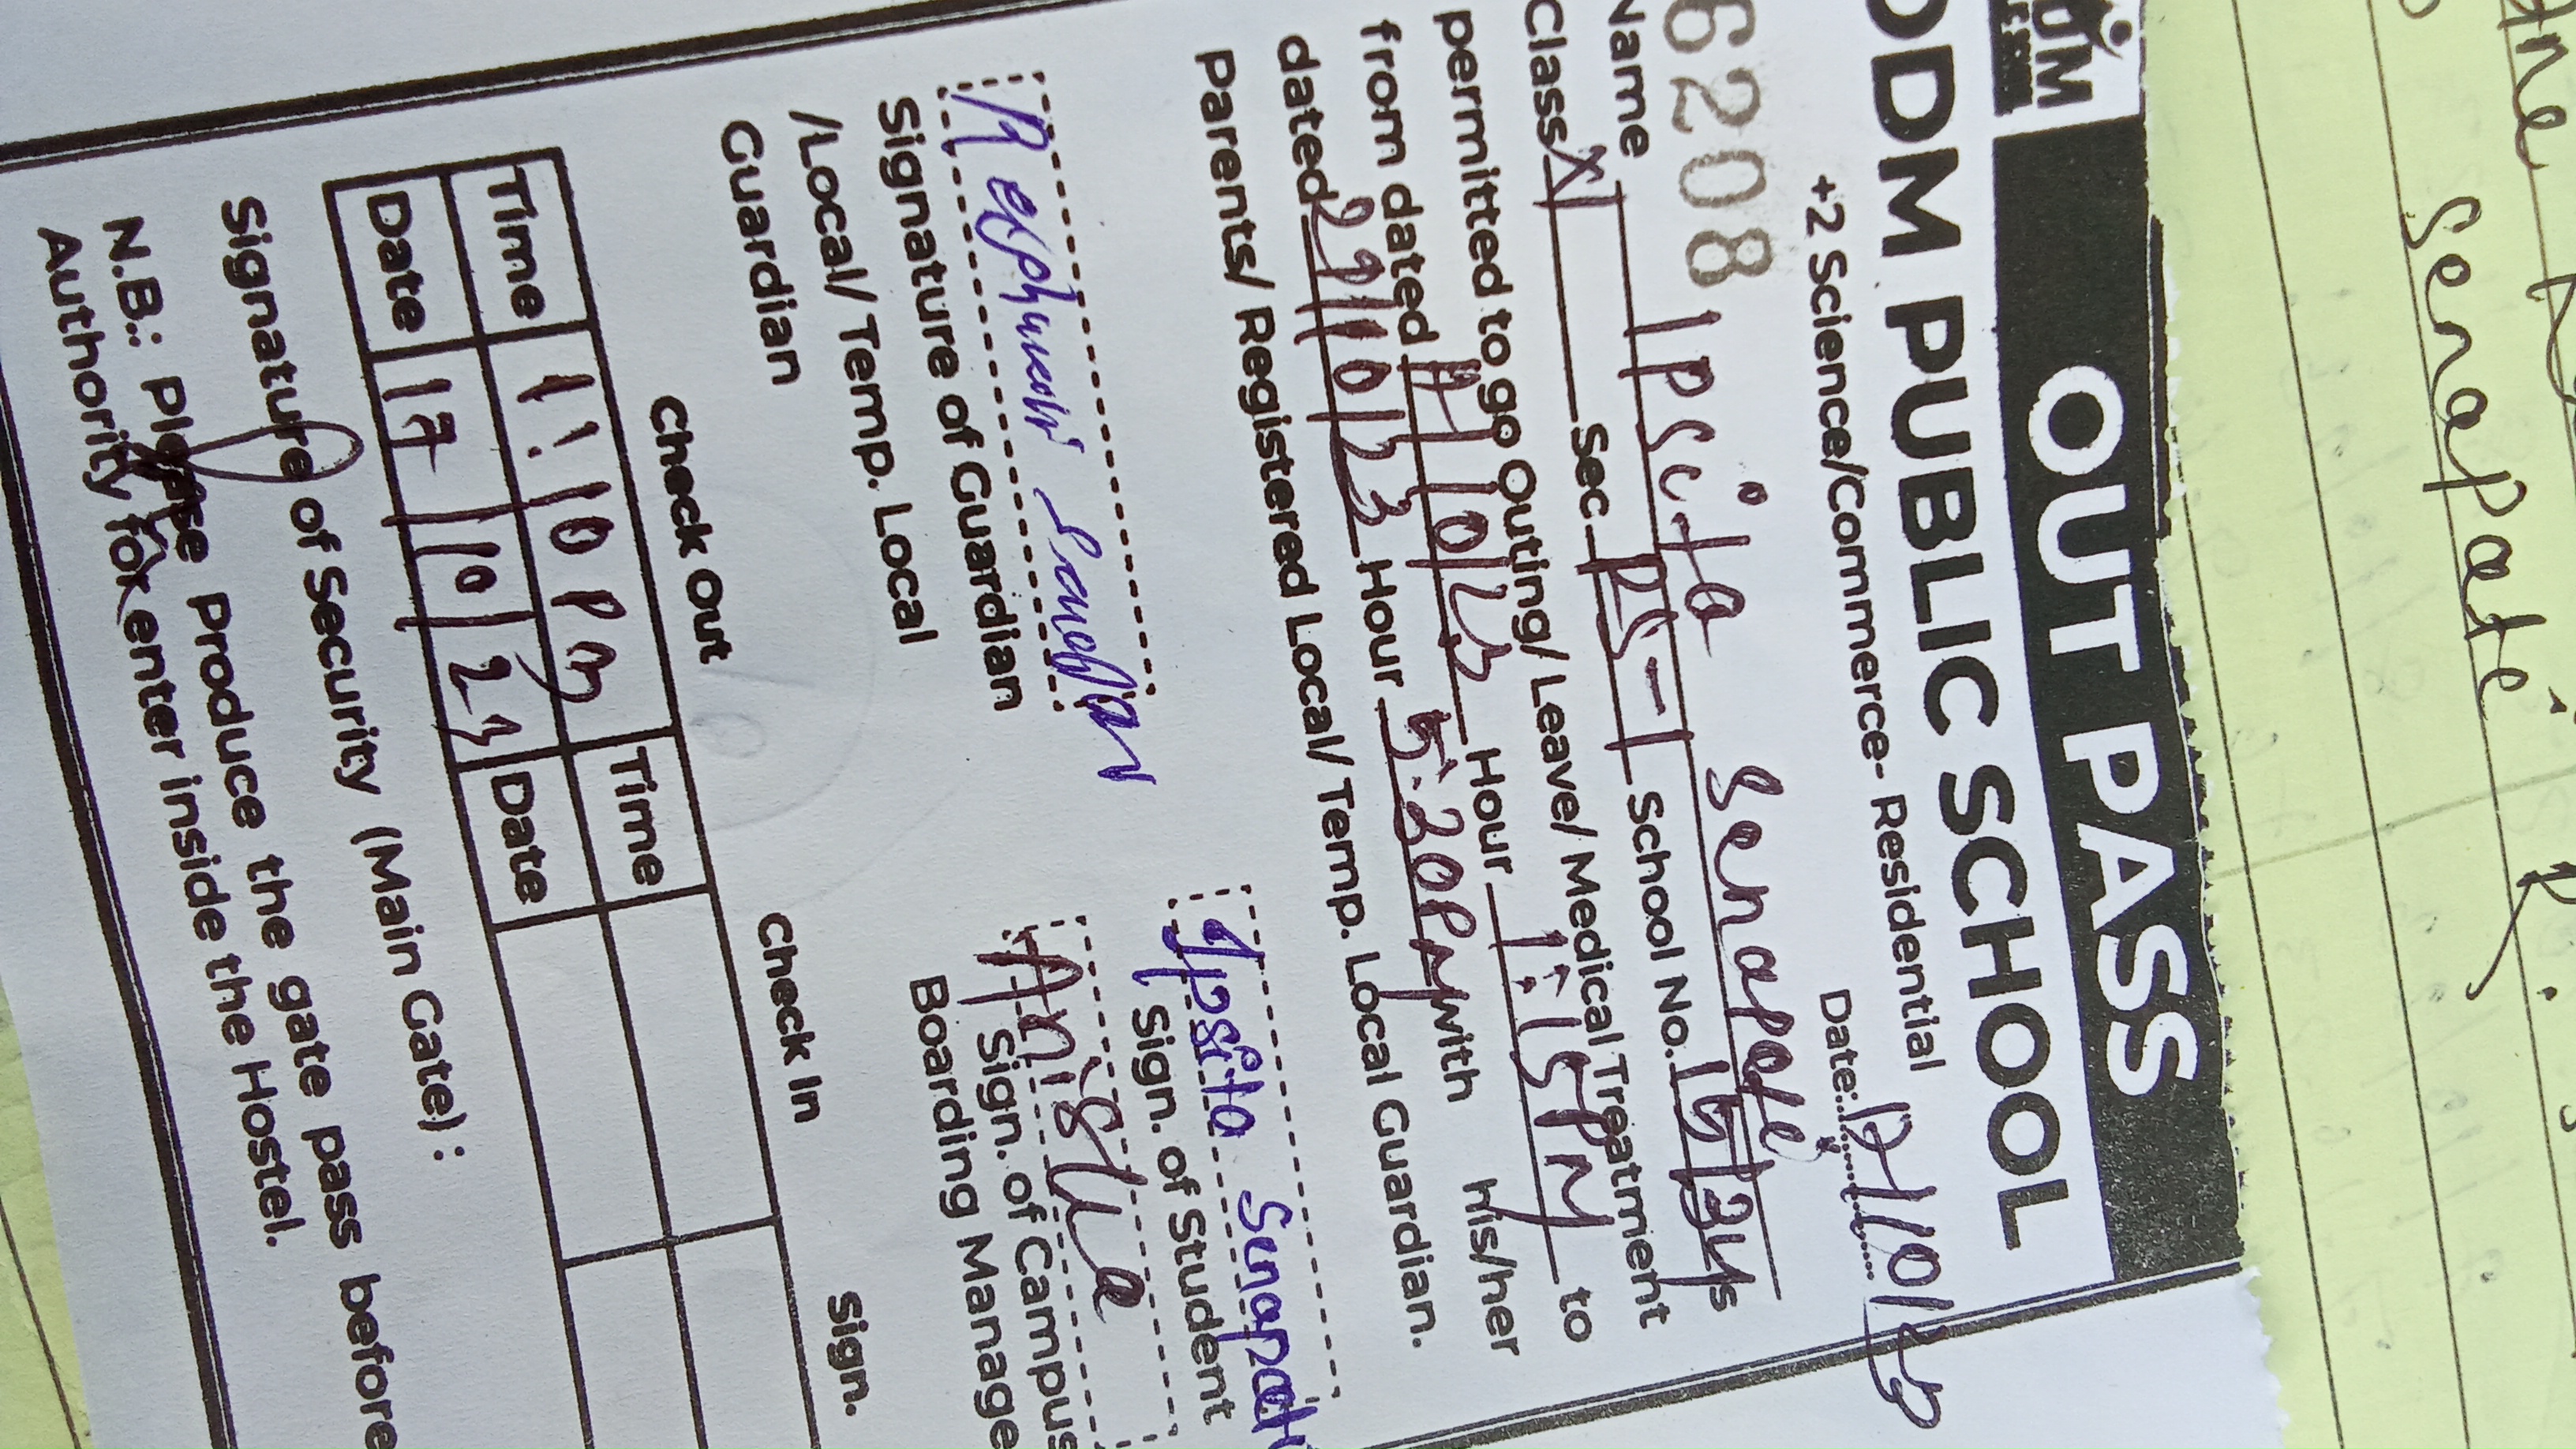 OUT PASS
ODM PUBLIC SCHOOL
+2 Science/Commerce- Residential
6208 Date:
Name Ipsita Senapati
Class XI Sec PS-1 School No.
permitted to go Outing/ Leave/ Medical Treatment
from dated Hour 1:15PM to
dated 29/10/23 Hour 5:20PM with his/her
Parents/ Registered Local/ Temp. Local Guardian.
Ipsita Senapati
Sign. of Student
Senapati
Signature of Guardian
/Local/ Temp. Local
Guardian
Anisha
Sign. of Campus
Boarding Manage
Check Out Check In Sign.
Time 1:10 Pm Time
Date 17/10/23 Date
Signature of Security (Main Gate) :
N.B.: Please Produce the gate pass before
Authority for enter inside the Hostel.
senapati